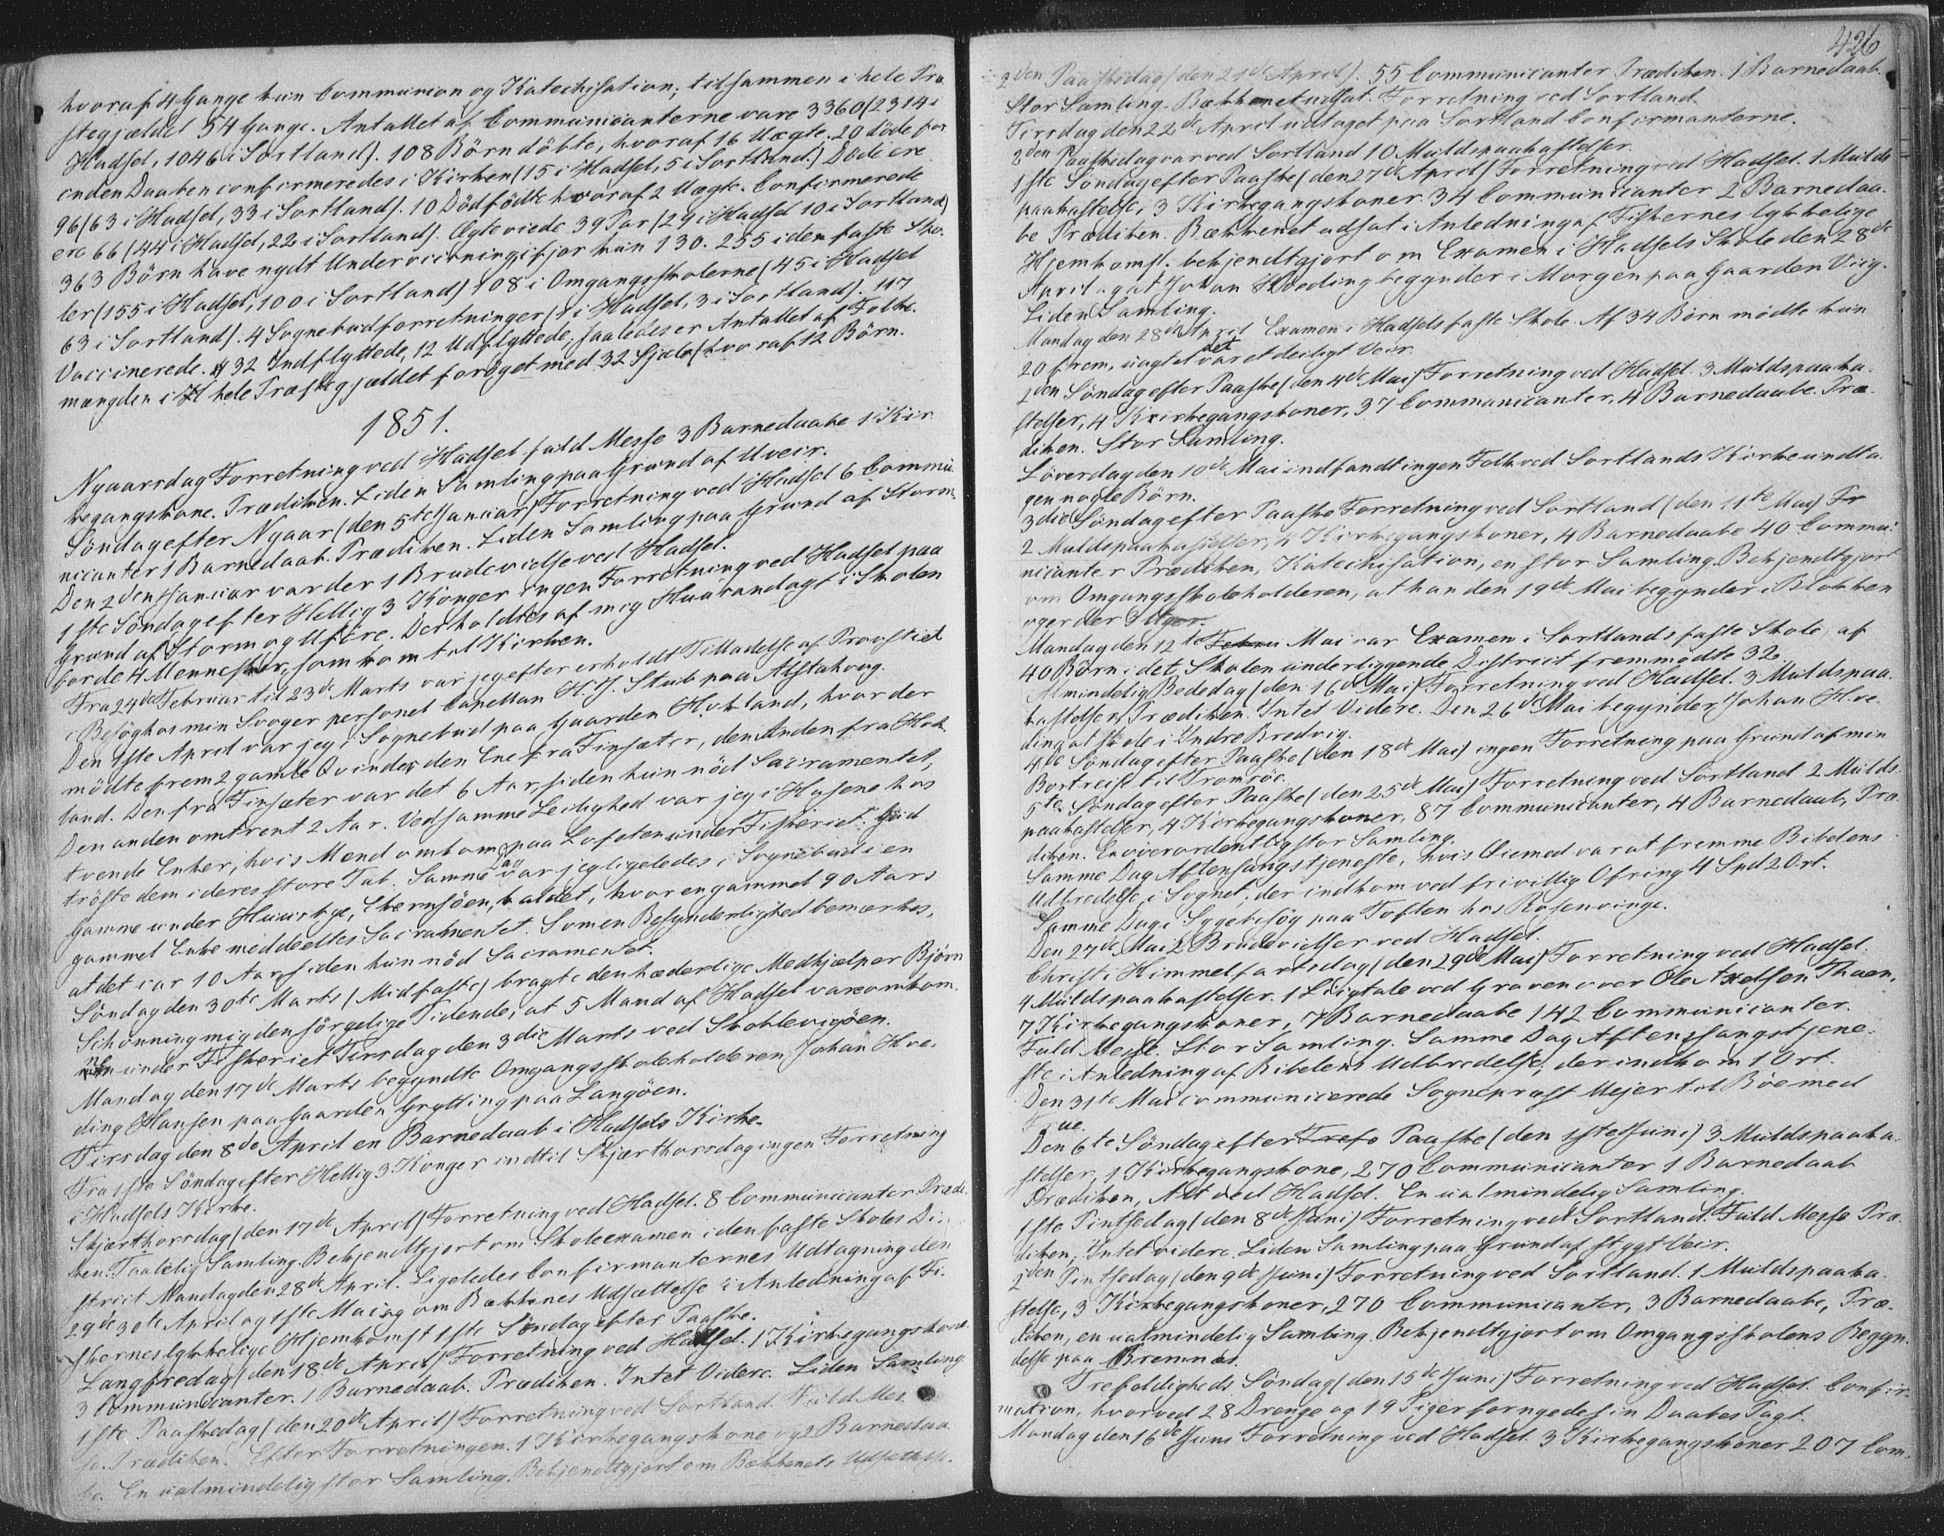 hvoraf 4 Gange kun Communion og Katechisation; tilsammen i hele Præ
stegjældet 54 Gange. Antallet af Communicanterne vare 3360 (2314 i
Hadsel, 1046 i Sortland). 108 Børn døbte, hvoraf 16 Uægte. 20 døde før
enden Daaben confirmeredes i Kirken (15 i Hadsel, 5 i Sortland.) Døde ere
96 (63 i Hadsel, 33 i Sortland). 10 Dödfödte hvoraf 2 Uægte. Confirmerede
ere 66 (44 i Hadsel, 22 i Sortland). Ægteviede 39 Par (29 i Hadsel 10 i Sortland)
363 Börn have nydt Underviisning ifjor kun 130. 255 i den faste Sko-
ler (155 i Hadsel, 100 i Sortland) 108 i Omgangsskolerne (45 i Hadsel
63 i Sortland). 4 Sognebudforretninger (1 i Hadsel, 3 i Sortland). 117
Vaccinerede. 32 Indflyttede, 12 Udflyttede, saaledes er Antallet af Folke-
mængden i hele Præstegjældet foröget med 32 Sjæle (hvoraf 12 Börn.
1851.
Nyaarsdag Forretning ved Hadsel fuld Messe 3 Barnedaabe 1 Kir
kegangskone. Prædiken. Liden Samling paa Grund af Uveir.
Söndag efter Nyaar (den 5te Januar) Forretning ved Hadsel 6 Commu
nicanter 1 Barnedaab. Prædiken. Liden Samling paa Grund af Storm
Den 2den Januar var der 1 Brudevielse ved Hadsel.
1ste Söndag efter Hellig 3 Konger ingen Forretning ved Hadsel paa
Grund af Storm og Uföre. Der holdtes af mig Huusandagt i Skolen
for de 4 Mennesker, som kom til Kirken.
Fra 24de Februar til 23de Marts var jeg efter erholdt Tilladelse af Provstiet
i Besög hos min Svoger personel Capellan H. J. Stub paa Alstahoug.
Den 1ste April var jeg i Sognebud paa Gaarden Hokland, hvor der
mödte frem 2 gamle Qvinder den Ene fra Finsæter, den Anden fra Hok
land. Den fra Finsæter var det 6 Aar, siden hun nöd Sacramentet,
Den anden omtrent 2 Aar. Ved samme Leilighed var jeg i Hasene hos
tvende Enker, hvis Mænd omkom paa Lofoten under Fiskeriet. Gud
tröste dem i deres store Tab. Samme Dag var jeg ligeledes i Sognebud i en
Gamme under Huurtye, kaldet, hvor en gammel 90 Aars
gammel Enke meddeeltes Sacramentet. Som en Besynderlighed bemærkes,
at det var 10 Aar, siden hun nöd Sacramentet.
Söndag den 30te Marts (Midfaste) bragte den hæderlige Medhjælper Björn
Schönning mig den sörgelige Tidende, at 5 Mand af Hadsel vare omkom
ne under Fiskeriet Tirsdag den 3die Marts ved Skoklevigöen.
Mandag den 17de Marts begyndte Omgangsskoleholderen Johan Hve-
ding Hansen paa Gaarden Grytting paa Langöen.
Tirsdag den 8de April en Barnedaab i Hadsels Kirke.
Fra 1ste Söndag efter Hellig 3 Konger indtil Skjærthorsdag ingen Forretning
i Hadsels Kirke.
Skjærthorsdag (den 17de April) Forretning ved Hadsel. 8 Communicanter Prædi-
ken. Taalelig Samling. Bekjendtgjort om Skoleexamen i den faste Skoles Di-
strict Mandag den 28de April. Ligeledes Confirmanternes Udtagning den
29de 30te April og 1ste Mai og om Bækkenes Udsættelse i Anledning af Fi-
skernes lykkelige Hjemkomst 1ste Söndag efter Paaske.
Langfredag (den 18de April) Forretning ved Hadsel. 1 Kirkegangskone
3 Communicanter. 1 Barnedaab. Prædiken. Intet Videre. Liden Samling.
1ste Paaskedag (den 20de April) Forretning ved Sortland. Fuld Mes-
se. Prædiken. Efter Forretningen. 1 Kirkegangskone og 2 Barnedaa
be. En ualmindelig stor Samling. Bekjendtgjort om Bækkenets Udsættelse.
426
2den Paaskedag (den 21de April). 55 Communicanter Prædiken. 1 Barnedaab.
Stor Samling. Bækkenet udsat. Forretning ved Sortland.
Tirsdag den 22de April udtaget paa Sortland Confirmanterne.
2den Paaskedag var ved Sortland 10 Muldspaakastelser.
1ste Söndag efter Paaske (den 27de April) Forretning ved Hadsel. 1 Mulds
paakastelse, 3 Kirkegangskoner 34 Communicanter 2 Barnedaa-
be Prædiken. Bækkenet udsat i Anledning af Fiskernes lykkelige
Hjemkomst. bekjendtgjort om Examen i Hadsels Skole den 28de
April. og at Johan Hveding begynder i Morgen paa Gaarden Viig.
Liden Samling.
Mandag den 28de April Examen i Hadsels faste Skole. Af 34 Börn mödte kun
20 frem, uagtet det var et deiligt Veir.
2den Söndag efter Paaske (den 4de Mai) Forretning ved Hadsel. 3 Muldspaaka-
stelser, 4 Kirkegangskoner, 37 Communicanter, 4 Barnedaabe. Præ-
diken. Stor Samling.
Löverdag den 10de Mai indfandt ingen Folk ved Sortlands Kirke undta-
gen nogle Börn.
3die Söndag efter Paaske Forretning ved Sortland (den 11te Mai) Fr
2 Muldspaakastelser, 4 Kirkegangskoner, 4 Barnedaabe 40 Commu-
nicanter Prædiken, Katechisation, en stor Samling. Bekjendtgjort
om Omgangsskoleholderen, at han den 19de Mai begynder i Blokken
oger der 3 Uger.
Mandag den 12te Febru Mai var Examen i Sortlands faste Skole, af
40 Börn i det, Skolen underliggende District fremmödte 32
Almindelig Bededag (den 16de Mai) Forretning ved Hadsel. 3 Muldspaa-
kastelser, Prædiken. Intet Videre. Den 26de Mai begynder Johan Hve-
ding at skole i Undre Bredvig.
4de Söndag efter Paaske (den 18de Mai) ingen Forretning paa Grund af min
Bortreise til Tromsöe.
5te Söndag efter Paaske (den 25de Mai) Forretning ved Sortland 2 Mulds
paakastelser, 4 Kirkegangskoner, 87 Communicanter, 4 Barnedaab, Præ-
diken. En overordentlig stor Samling.
Samme Dag Aftensangstjeneste, hvis Öiemed var at fremme Bibelens
Udbredelse i Sognet, der indkom ved frivillig Ofring 4 Spd 2 Ort.
Samme Dag i Sygebesög paa Toften hos Rosenvinge.
Den 27de Mai 2 Brudevielser ved Hadsel.
Christi Himmelfartsdag (den 29de Mai) Forretning ved Hadsel.
4 Muldspaakastelser. 1 Liigtale ved Graven over Ole Axelsen Thaen,
7 Kirkegangskoner, 7 Barnedaabe 142 Communicanter.
Fuld Messe. Stor Samling. Samme Dag Aftensangstjene-
ste i Anledning af Bibelens Udbredelse, der indkom 1 Ort.
Den 31te Mai communicerede Sognepræst Mejer til Böe med
Frue.
Den 6te Söndag efter Trefo Paaske (den 1ste Juni) 3 Muldspaaka-
stelser, 1 Kirkegangskone, 270 Communicanter 1 Barnedaab
Prædiken, Alt ved Hadsel. En ualmindelig Samling.
1ste Pintsedag (den 8de Juni) Forretning ved Sortland. Fuld Messe Præ-
diken. Intet videre. Liden Samling paa Grund af stygt Veir.
2den Pintsedag (den 9de Juni) Forretning ved Sortland. 1 Muldspaaka-
stelse, 3 Kirkegangskoner, 270 Communicanter, 3 Barnedaabe, Præ-
diken, en ualmindelig Samling. Bekjendtgjort om Omgangsskolens Begyn-
delse paa Bremnæs.
Trefoldigheds Söndag (den 15de Juni) Forretning ved Hadsel. Confir-
mation, hvorved 28 Drenge og 19 Piger fornyede sin Daabes Pagt.
Mandag den 16de Juni Forretning ved Hadsel. 3 Kirkegangskoner 207 Com-